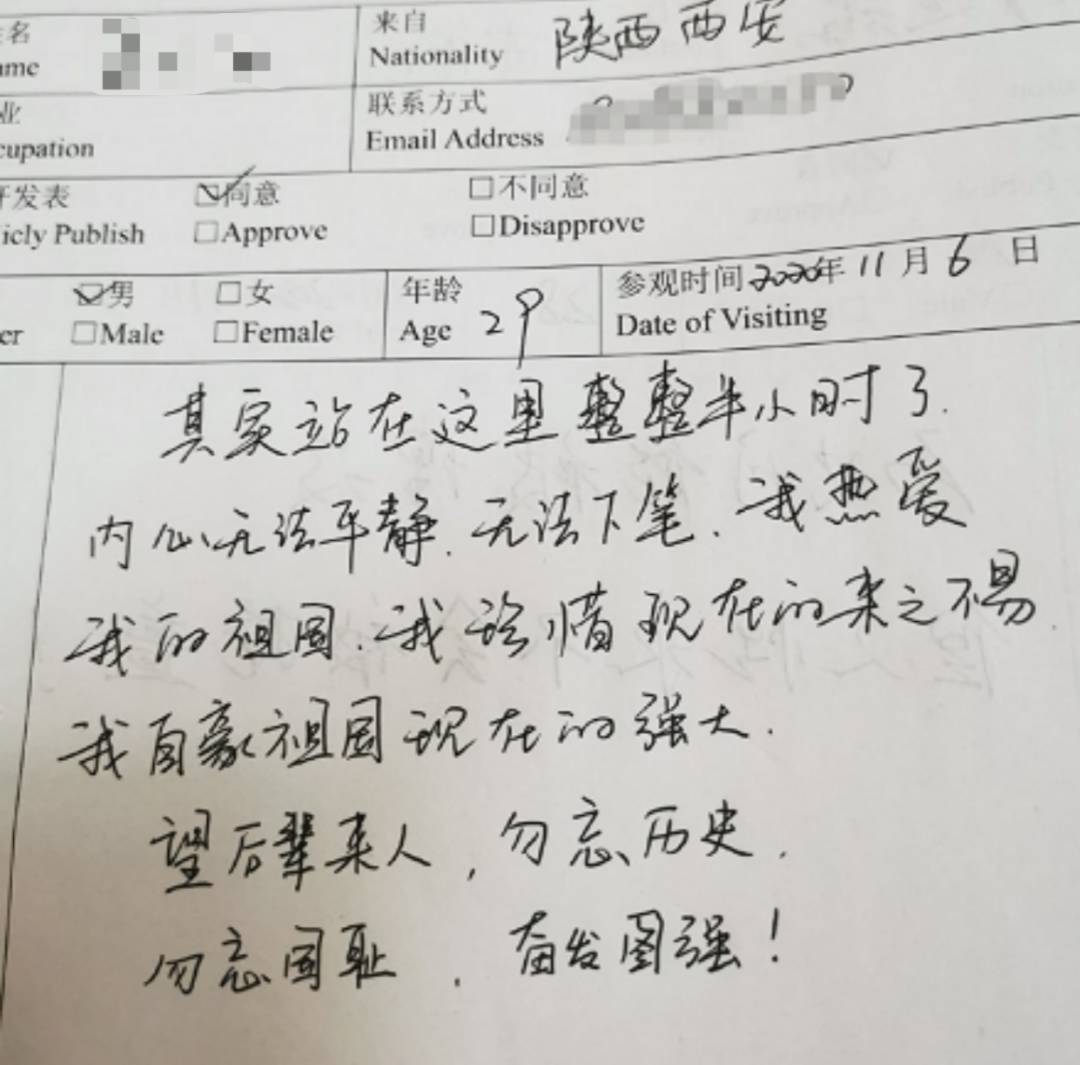 名 来自 陕西西安
me Nationality
业 联系方式
cupation Email Address
开发表 同意 不同意
icly Publish Approve Disapprove
男 女 年龄 29 参观时间 2020年 11 月 6 日
er Male Female Age Date of Visiting
其实站在这里整整半小时了.
内心无法平静.无法下笔.我热爱
我的祖国.我珍惜现在的来之不易.
我自豪祖国现在的强大.
望后辈来人,勿忘历史.
勿忘国耻.奋发图强!